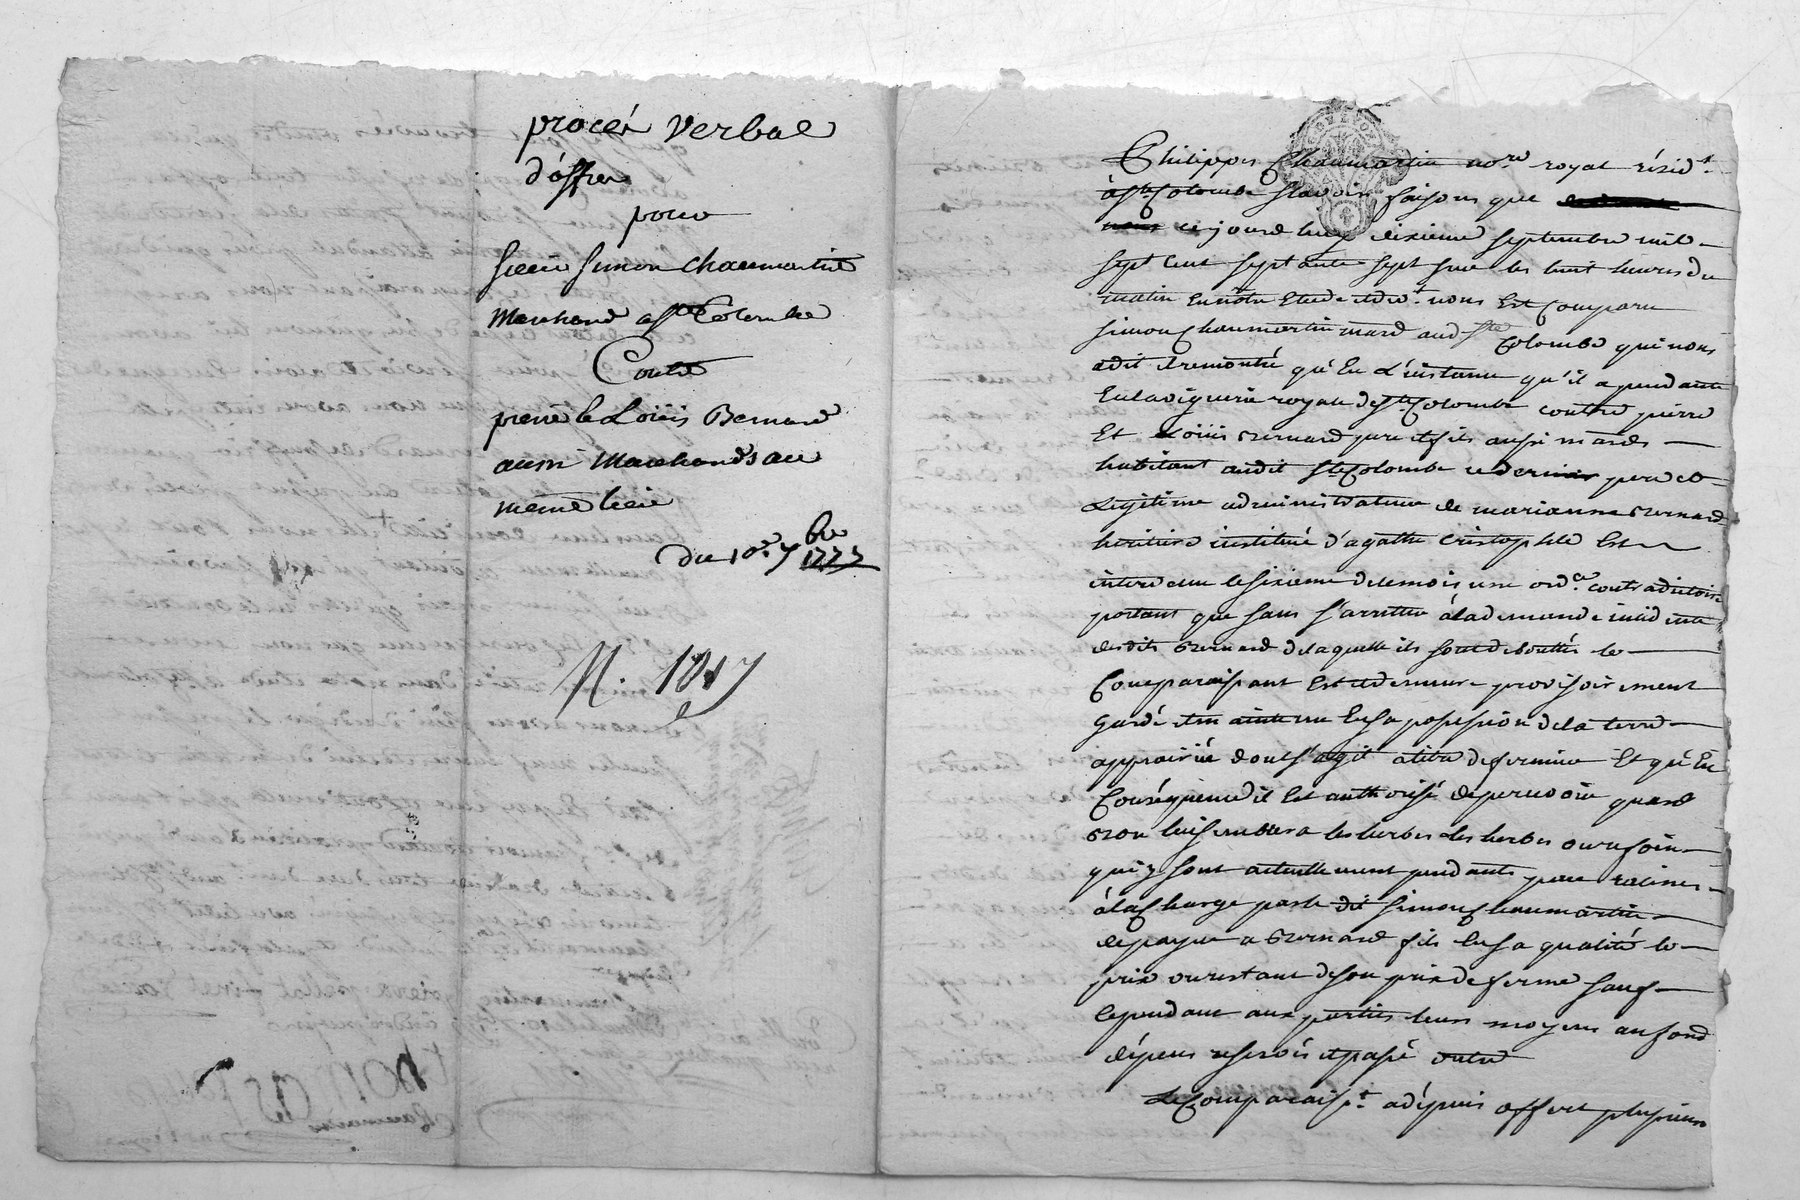 procés verbal
d'offres
pour
sieur simon chaumartin
Marchand a ste Colombe
Contre
pierre & Loüis Bernard
aussi Marchands au
meme lieu
du 10e. 7bre 1777
N. 1047
Philippes Chaumartin nore. royal résidt.
à ste Colombe scavoir faisons que
ce jourd'huy dixieme septembre mil
sept cent septante sept sur les huit heures du
matin en notre Etude et devt. nous Est Comparu
simon Chaumartin mard aud ste Colombe qui nous
a dit et remontré qu'En L'instance qu'il a pendante
En la viguerie royalle de ste Colombe contre pierre
Et Loüis Bernard pere et fils aussi mards
habitant audit ste Colombe ce dernier pere et
Legitime administrateur de marianne Bernard
heritiere instituée d'agathe Cristophle Est
intervenu le sixieme de ce mois une ordce. contradictoire
portant que sans s'arretter à la demande incidente
desdits Bernard de laquelle ils sont deboutés le
Comparaissant Est et demeure provisoirement
gardé et maintenu En sa possession de la terre
apprairiée dont s'agit a titre de ferme Et qu'En
Conséquence il Est authorisé de percevoir quand
Bon luy semblera les herbes ou refoin
qui y sont actuellement pendants par racines
à la Charge par le dit simon Chaumartin
de payer a Bernard fils En sa qualité le
prix ou restant de son prix de ferme sauf
Cependant aux parties leurs moyens au fond
dépens reservés et passé outre
Le Comparaisst. a dépuis offert plusieurs